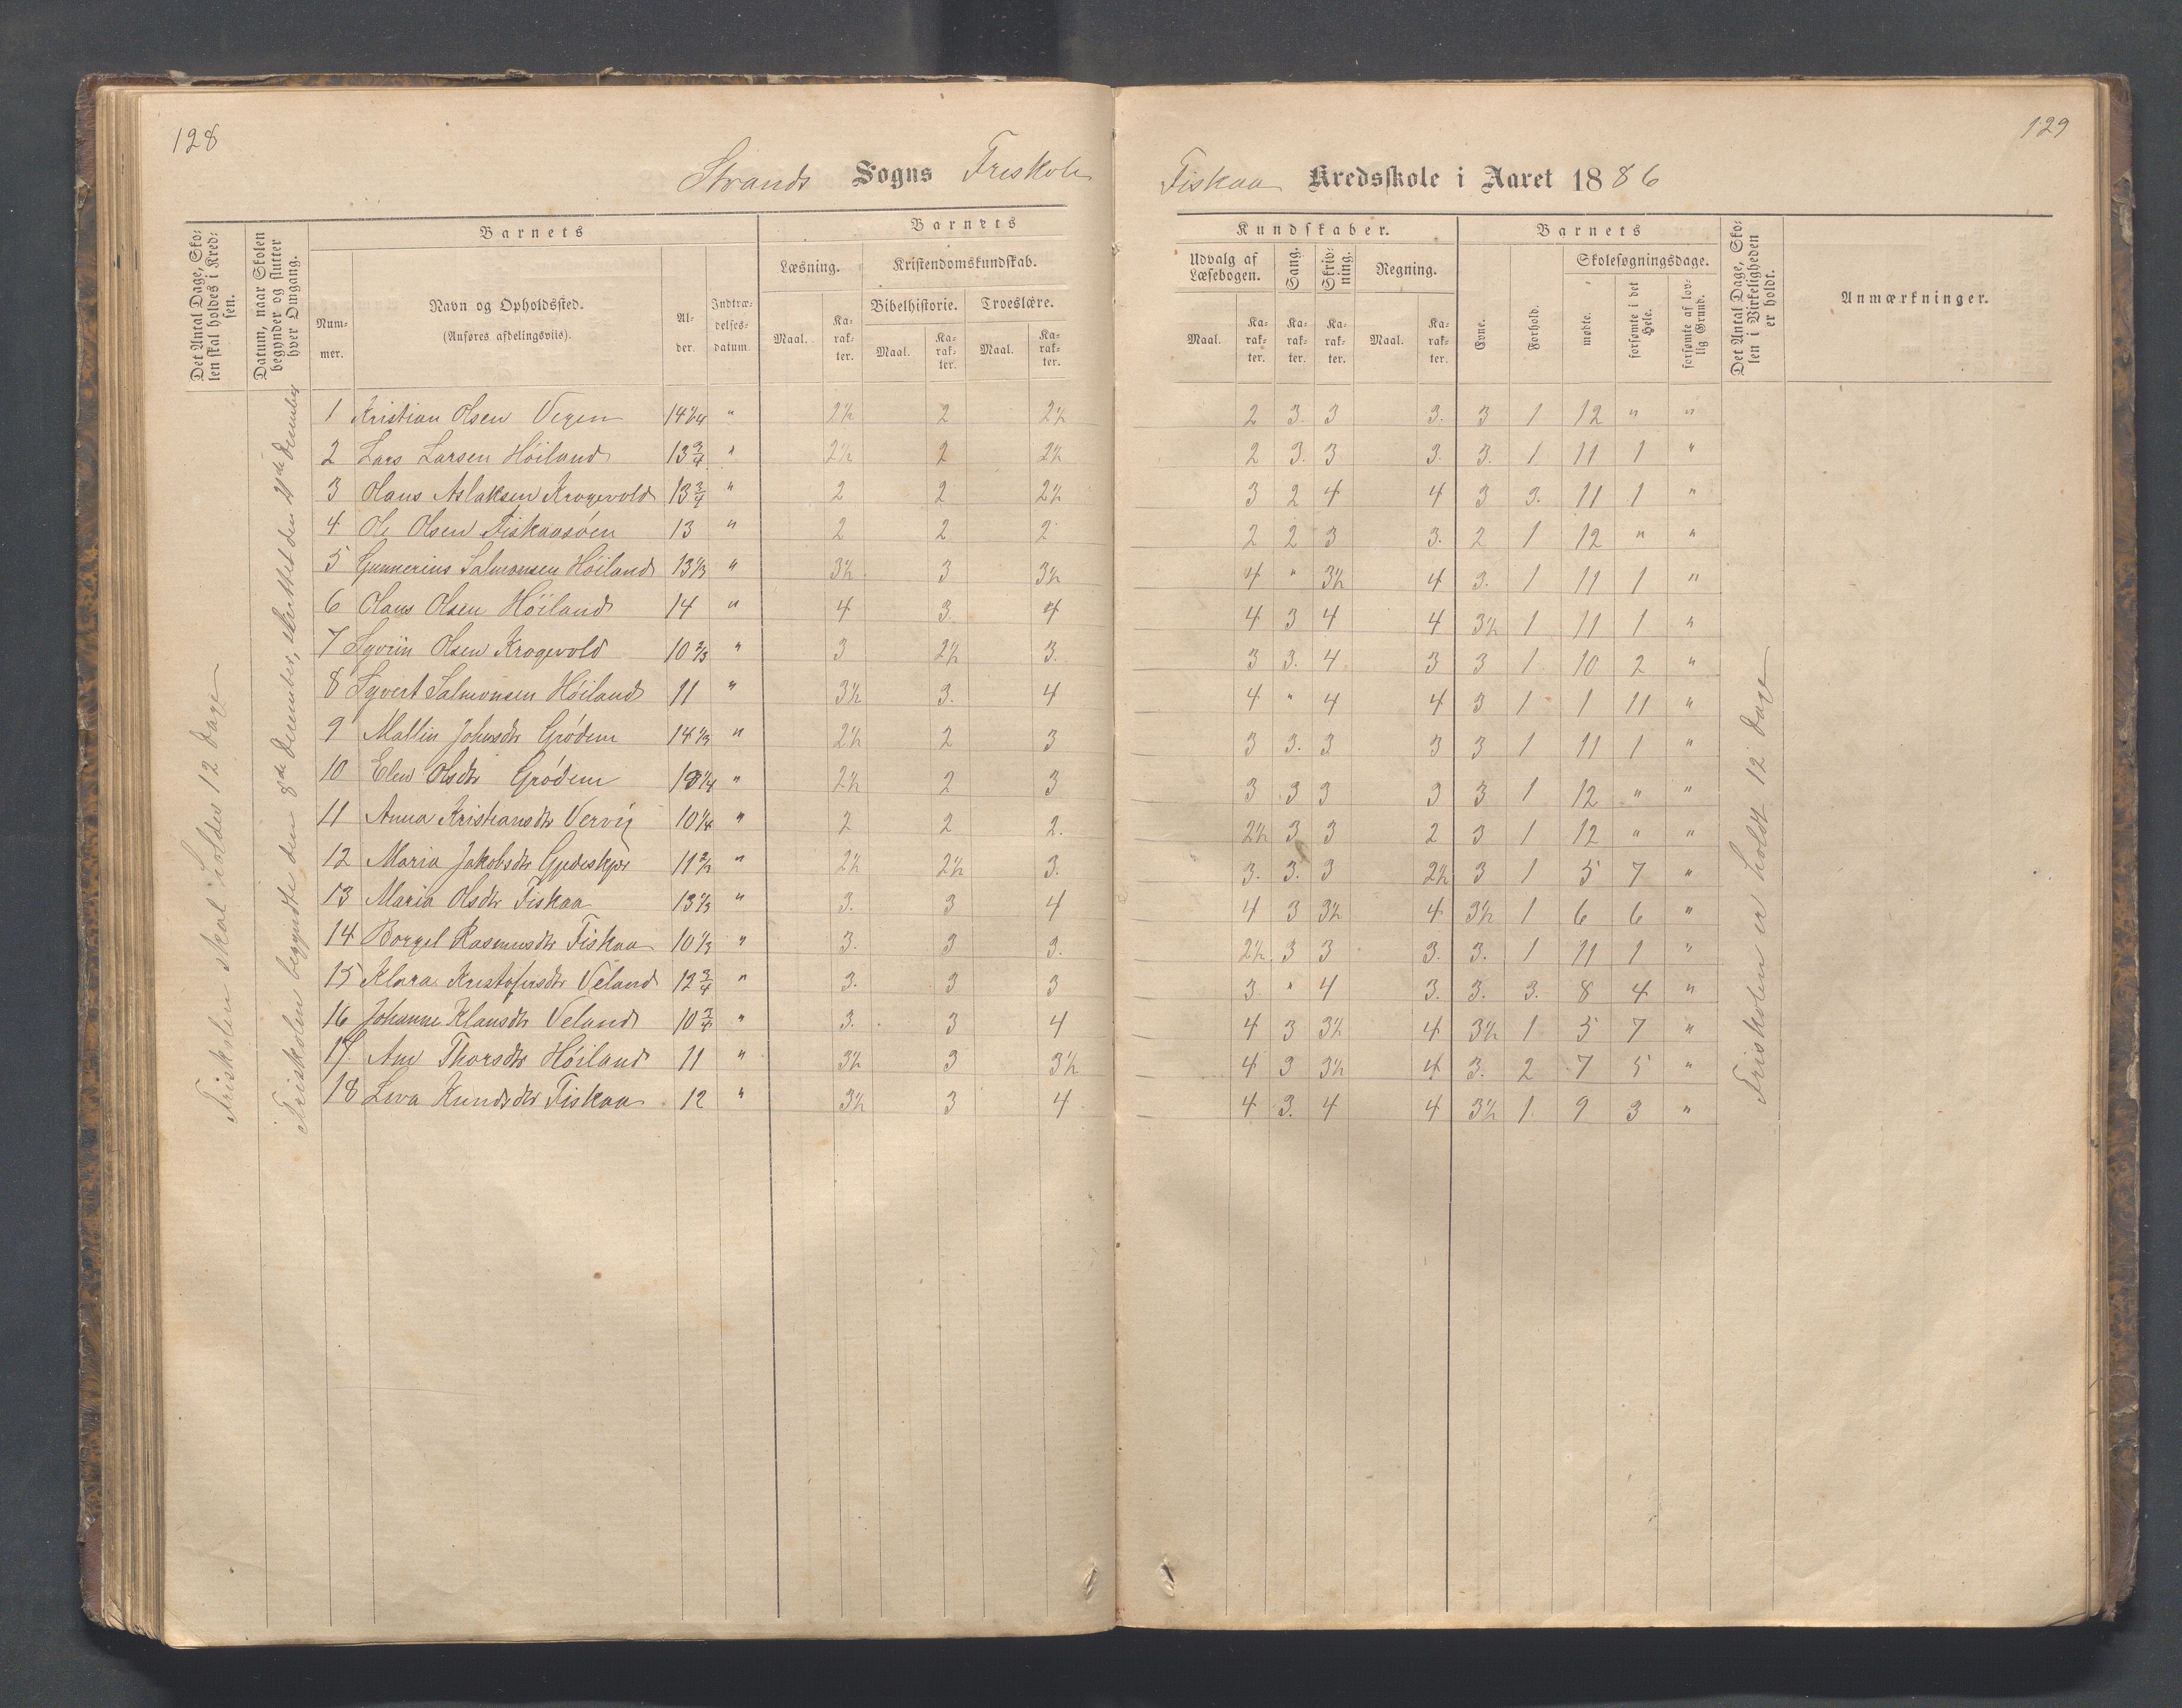 128
129
Strands Sogns Friskole
Fiskaa Kredsskole i Aaret 1886
Det Antal Dage, Sko-
len skal holdes i Kred-
sen.
Datum, naar Skolen
begynder og slutter
hver Omgang.
Barnets
Num-
mer.
Navn og Opholdssted.
(Anføres afdelingsviis).
Al-
der.
Indtræ-
delses-
datum.
Barnets
Læsning.
Kristendomskundskab.
Bibelhistorie.
Troeslære.
Maal.
Ka-
rak-
ter.
Maal.
Ka-
rak-
ter.
Maal.
Ka-
rak-
ter.
Kundskaber.
Udvalg af
Læsebogen.
Sang.
Skriv-
ning.
Regning.
Maal.
Ka-
rak-
ter.
Ka-
rak-
ter.
Ka-
rak-
ter.
Maal.
Ka-
rak-
ter.
Barnets
Evne.
Forhold.
Skolesøgningsdage.
mødte.
forsømte i det
Hele.
forsømte af lov-
lig Grund.
Det Antal Dage, Sko-
len i Virkeligheden
er holdt.
Anmærkninger.
Friskolen skal holdes 12 dage
Friskolen begyndte den 8de December, sluttet den 21de December
1 Kristian Olsen 14 1/4 " 2½ 2 2½ 2 3. 3 3. 3 1 12 " "
2 Lars Larsen Höiland 13 3/4 " 2½ 2 2½ 2 3. 3 3. 3. 1 11 1 "
3 Olaus Aslaksen Krogevold 13 3/4 " 2 2 2½ 3 2 4 4 3 3. 11 1 "
4 Ole Olsen Fiskaasoen 13 " 2 2 2 2 2 3 3. 2 1 12 " "
5 Gunnerius Salmonsen Höiland 13 1/3 " 3½ 3 3½ 4 " 3½ 4 3. 1 11 1 "
6 Olaus Olsen Höiland 14 " 4 3. 4 4 3 4 4 3½ 1 11 1 "
7 Syvrin Olsen Krogevold 10 2/3 " 3 2½ 3. 3 3. 4 3 3 1 10 2 "
8 Syvert Salmonsen Höiland 11 " 3½ 3. 4 4 " 4 4 3 1 1 11 "
9 Mallin Johnsdtr Grödem 14 1/3 " 2½ 2 3 3 3. 3 3 3 1 11 1 "
10 Elen Olsdtr Grödem " 2½ 2 3 3 3 3 3 3 1 12 " "
11 Anna Kristiansdtr Vervig 10 1/4 " 2 2 2. 2½ 3 3 2 3 1 12 " "
12 Maria Jakobsdtr " 2½ 2½ 3. 3. 3. 3 2½ 3 1 5 7 "
13 Maria Olsdtr Fiskaa 13 1/3 " 3. 3 4 4 3 3½ 4 3½ 1 6 6 "
14 Borgel Rasmusdtr Fiskaa 10 1/3 " 3. 3 3. 2½. 3 3 3. 3. 1 11 1 "
15 Klara Kristofersdtr Veland 12 3/4 " 3. 3 3 3 " 4 3. 3. 3. 8 4 "
16 Johanne Klausdtr Veland 10 3/4 " 3. 3 4 4 3 3½ 4 3½ 1 5 7 "
17. Ane Thorsdtr Höiland 11 " 3½ 3 3½ 4 3 3½ 4 3. 2 7 5 "
18 Lova Knudsdtr Fiskaa 12 " 3½ 3 4 4 3. 4 4 3½ 1. 9 3 "
Friskolen er holdt 12 dage